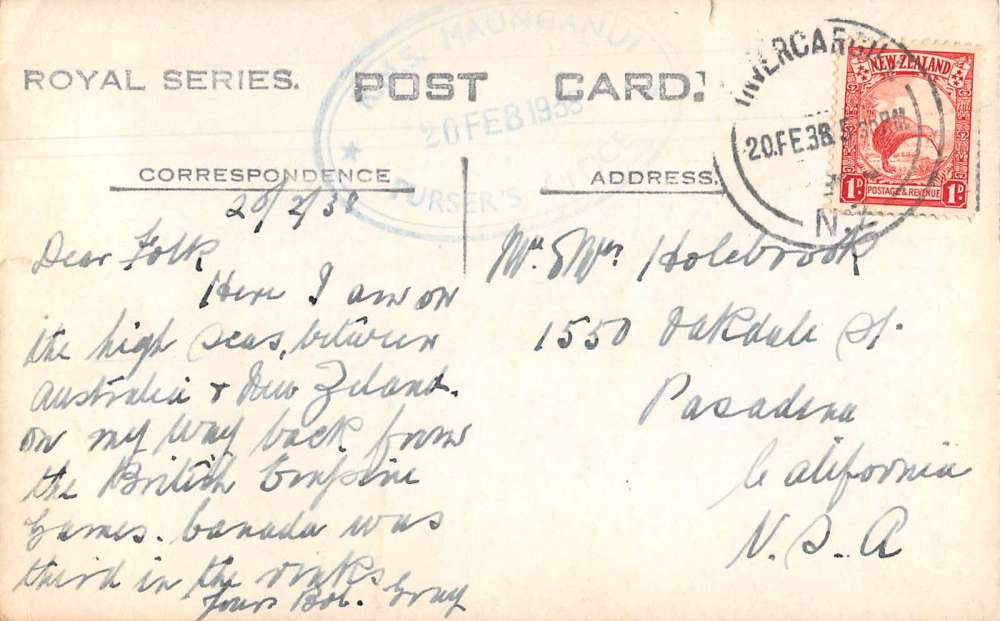 R.M.S. MAUNGANUI
20 FEB 1938
PURSER'S OFFICE
ROYAL SERIES.
POST CARD.
INVERCARGILL
20.FE.38.5-30PM
N.Z.
NEW ZEALAND
1D POSTAGE & REVENUE 1D
CORRESPONDENCE
ADDRESS.
20/2/38
Dear Folk
Here I am on
the high seas, between
Australia & New Zeland.
on my way back from
the British Empire
Games. Canada was
third in the rinks
Yours Bob. Gray
Mr. & Mrs Holebrook
1550 Oakdale St.
Pasadena
California
U. S. A